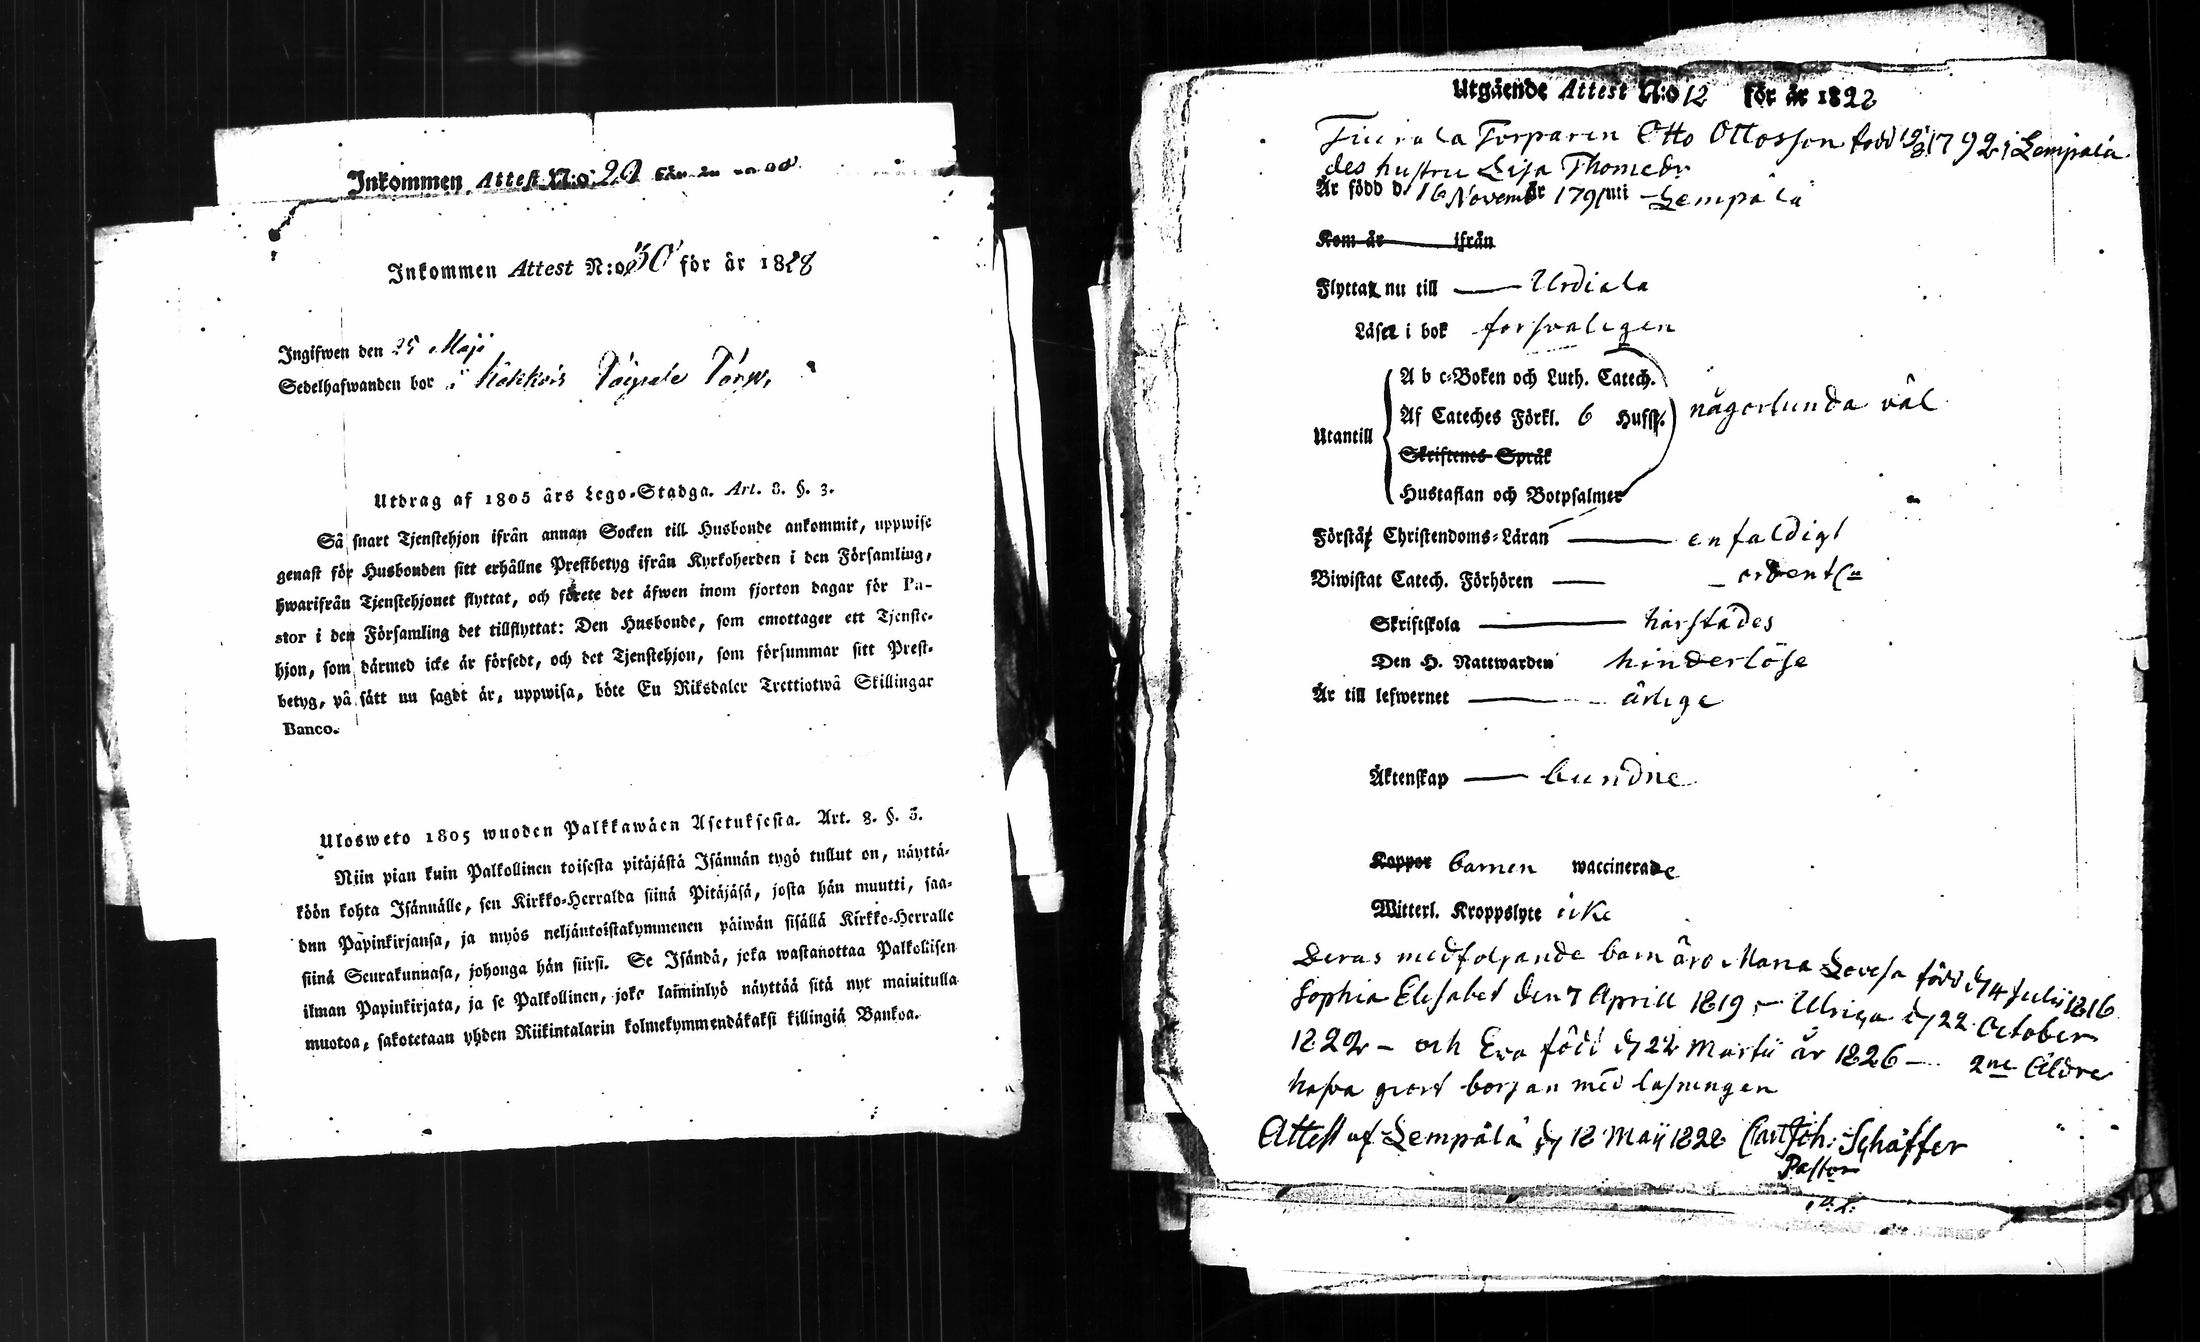 Inkommen Attest N:o 29
Inkommen Attest N:o 30 för år 1828
Ingifwen den 25 Maji
Sedelhafwanden bor i
Utdrag af 1805 års Lego-Stadga. Art. 8. §. 3.
Så snart Tjenstehjon ifrån annan Socken till Husbonde ankommit, uppwise
genast för Husbonden sitt erhållne Prestbetyg ifrån Kyrkoherden i den Församling,
hwarifrån Tjenstehjonet flyttat, och förete det äfwen inom fjorton dagar för Pa-
stor i den Församling det tillflyttat: Den Husbonde, som emottager ett Tjenste-
hjon, som därmed icke är försedt, och det Tjenstehjon, som försummar sitt Prest-
betyg, på sätt nu sagdt är, uppwisa, böte En Riksdaler Trettiotwå Skillingar
Banco.
Ulosweto 1805 wuoden Palkkawäen Asetuksesta. Art. 8. §. 3.
Niin pian kuin Palkollinen toisesta pitäjästä Isännän tygö tullut on, näyttä-
köön kohta Isännälle, sen Kirkko-Herralda siinä Pitäjäsä, josta hän muutti, saa-
dun Papinkirjansa, ja myös neljäntoistakymmenen päiwän sisällä Kirkko-Herralle
siinä Seurakunnasa, johonga hän siirsi. Se Isändä, joka wastanottaa Palkollisen
ilman Papinkirjata, ja se Palkollinen, joka laiminlyö näyttää sitä nyt mainitulla
muotoa, sakotetaan yhden Riikintalarin kolmekymmendäkaksi killingiä Bankoa.
Utgående Attest N:o 12 för år 1828
Torparen Otto Ottosson född 19/8 1792 i Lempälä
des hustru Lisa Thomedr
Är född d. 16 Novembr 1791 uti Lempälä
Kom år ifrån
Flyttar nu till Urdiala
Läser i bok forsvaligen
A b c-Boken och Luth. Catech.
Af Cateches Förkl. 6 Hufst. någorlunda väl
Utantill
Skriftenes Språk
Hustaflan och Botpsalmer
Förstår Christendoms-Läran enfaldigt
Biwistat Catech. Förhören ordentl:n
Skriftskola härstädes
Den H. Nattwarden hinderlöse
Är till lefwernet ärlige
Äktenskap bundne
Koppor barnen waccinerade
Witterl. Kroppslyte icke
Deras medföljande barn äro Maria Lovisa född d 14 Julii 1816
Sophia Elisabet den 7 Aprill 1819 – Ulrica d 22 October
1822 – och Eva född d 22 Martii år 1826 – 2ne Äldre
hafva giort början med läsningen
Attest af Lempälä d 18 Maij 1828 Carl Joh: Schäffer
Pastor